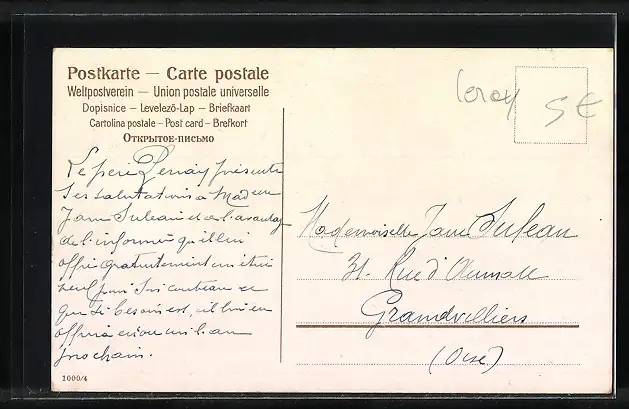 Postkarte — Carte postale
Weltpostverein — Union postale universelle
Dopisnice – Levelező-Lap – Briefkaart
Cartolina postale – Post card – Brefkort
Открытое-письмо
Le père présente
Ses salutations à Madem
Jane Suleau et a l'avantag
de l'informer qu'il lui
offre gratuitement un étui
neuf pour son couteau et
que si besoin est, il lui en
offrira encore un l'an
prochain.
1000/4
Leroy
5 €
Mademoiselle Jane Suleau
31. Rue d'Aumale
Grandvilliers
(Oise)